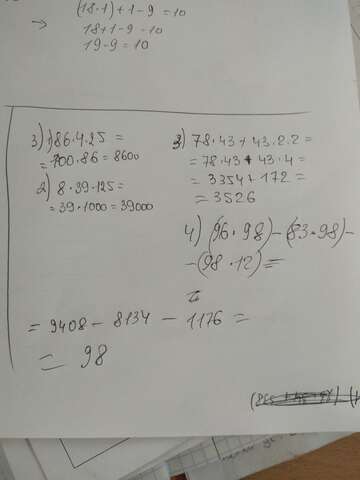 (18·1)+1-9=10
→ 18+1-9=10
19-9=10
3) 1) 86·4·25=
=100·86=8600
2) 8·39·125=
=39·1000=39000
3) 78·43+43·2·2=
=78·43+43·4=
=3354+172=
=3526
4) (96·98)-(83·98)-
-(98·12)=
=9408-8134-1176=
= 98